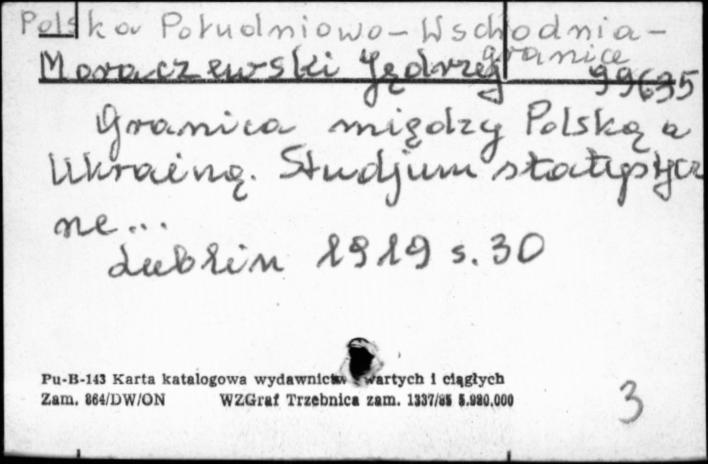 Polska Południowo-Wschodnia-
granice
Moraczewski Jędrzej 99695
Granica między Polską a
Ukrainą. Studjum statystycz
ne...
Lublin 1919 s. 30
Pu-B-143 Karta katalogowa wydawnictw zwartych i ciągłych
Zam. 864/DW/ON WZGraf Trzebnica zam. 1337/85 5.980,000
3